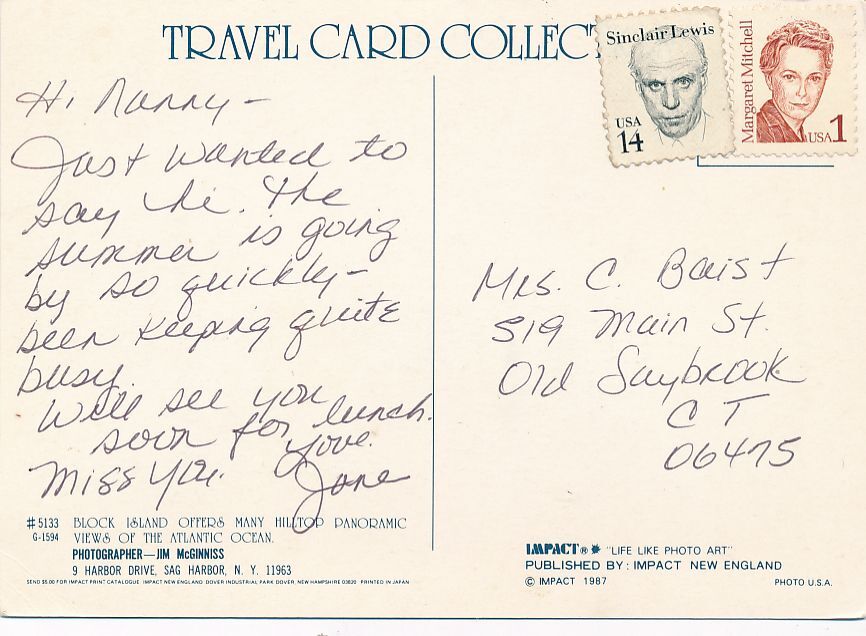 TRAVEL CARD COLLECT
Sinclair Lewis
USA
14
Margaret Mitchell
USA 1
Hi Nanny -
Just wanted to
say hi. The
summer is going
by so quickly -
been keeping quite
busy.
Will see you
soon for lunch.
Miss you. Love
Jane
Mrs. C. Baist
519 Main St.
Old Saybrook
CT
06475
#5133 BLOCK ISLAND OFFERS MANY HILLTOP PANORAMIC
G-1594 VIEWS OF THE ATLANTIC OCEAN.
PHOTOGRAPHER—JIM McGINNISS
9 HARBOR DRIVE, SAG HARBOR, N. Y. 11963
SEND $5.00 FOR IMPACT PRINT CATALOGUE IMPACT NEW ENGLAND DOVER INDUSTRIAL PARK DOVER, NEW HAMPSHIRE 03820 PRINTED IN JAPAN
IMPACT® "LIFE LIKE PHOTO ART"
PUBLISHED BY: IMPACT NEW ENGLAND
© IMPACT 1987 PHOTO U.S.A.